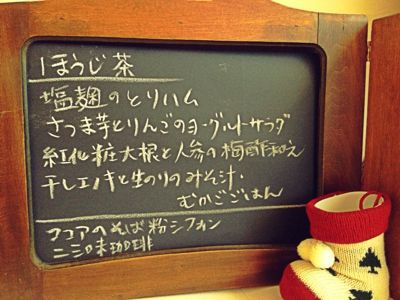 ほうじ茶
塩麹のとりハム
さつま芋とりんごのヨーグルトサラダ
紅化粧大根と人参の梅酢和え
干しエノキと生のりのみそ汁.
むかごごはん
ココアのそば粉シフォン
珈琲